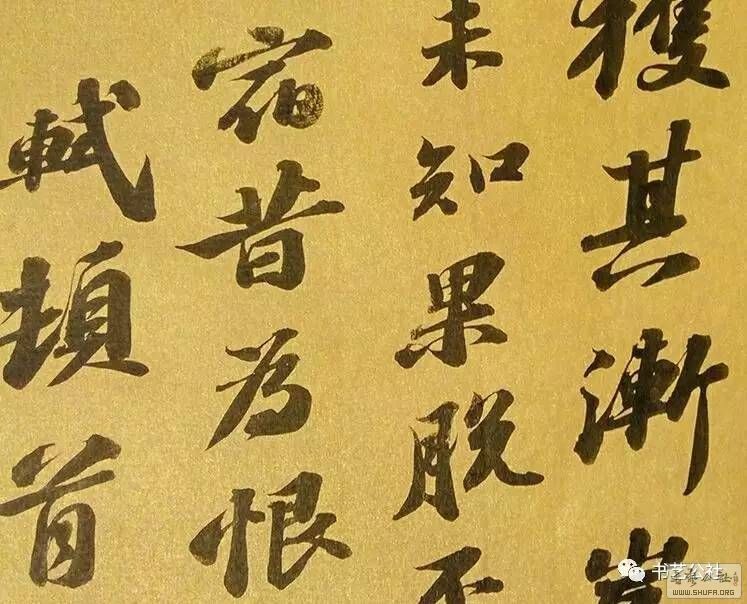 獲其漸豈
未知果脱不
宿昔為恨
軾頓首
书艺公社
WWW.SHUFA.ORG